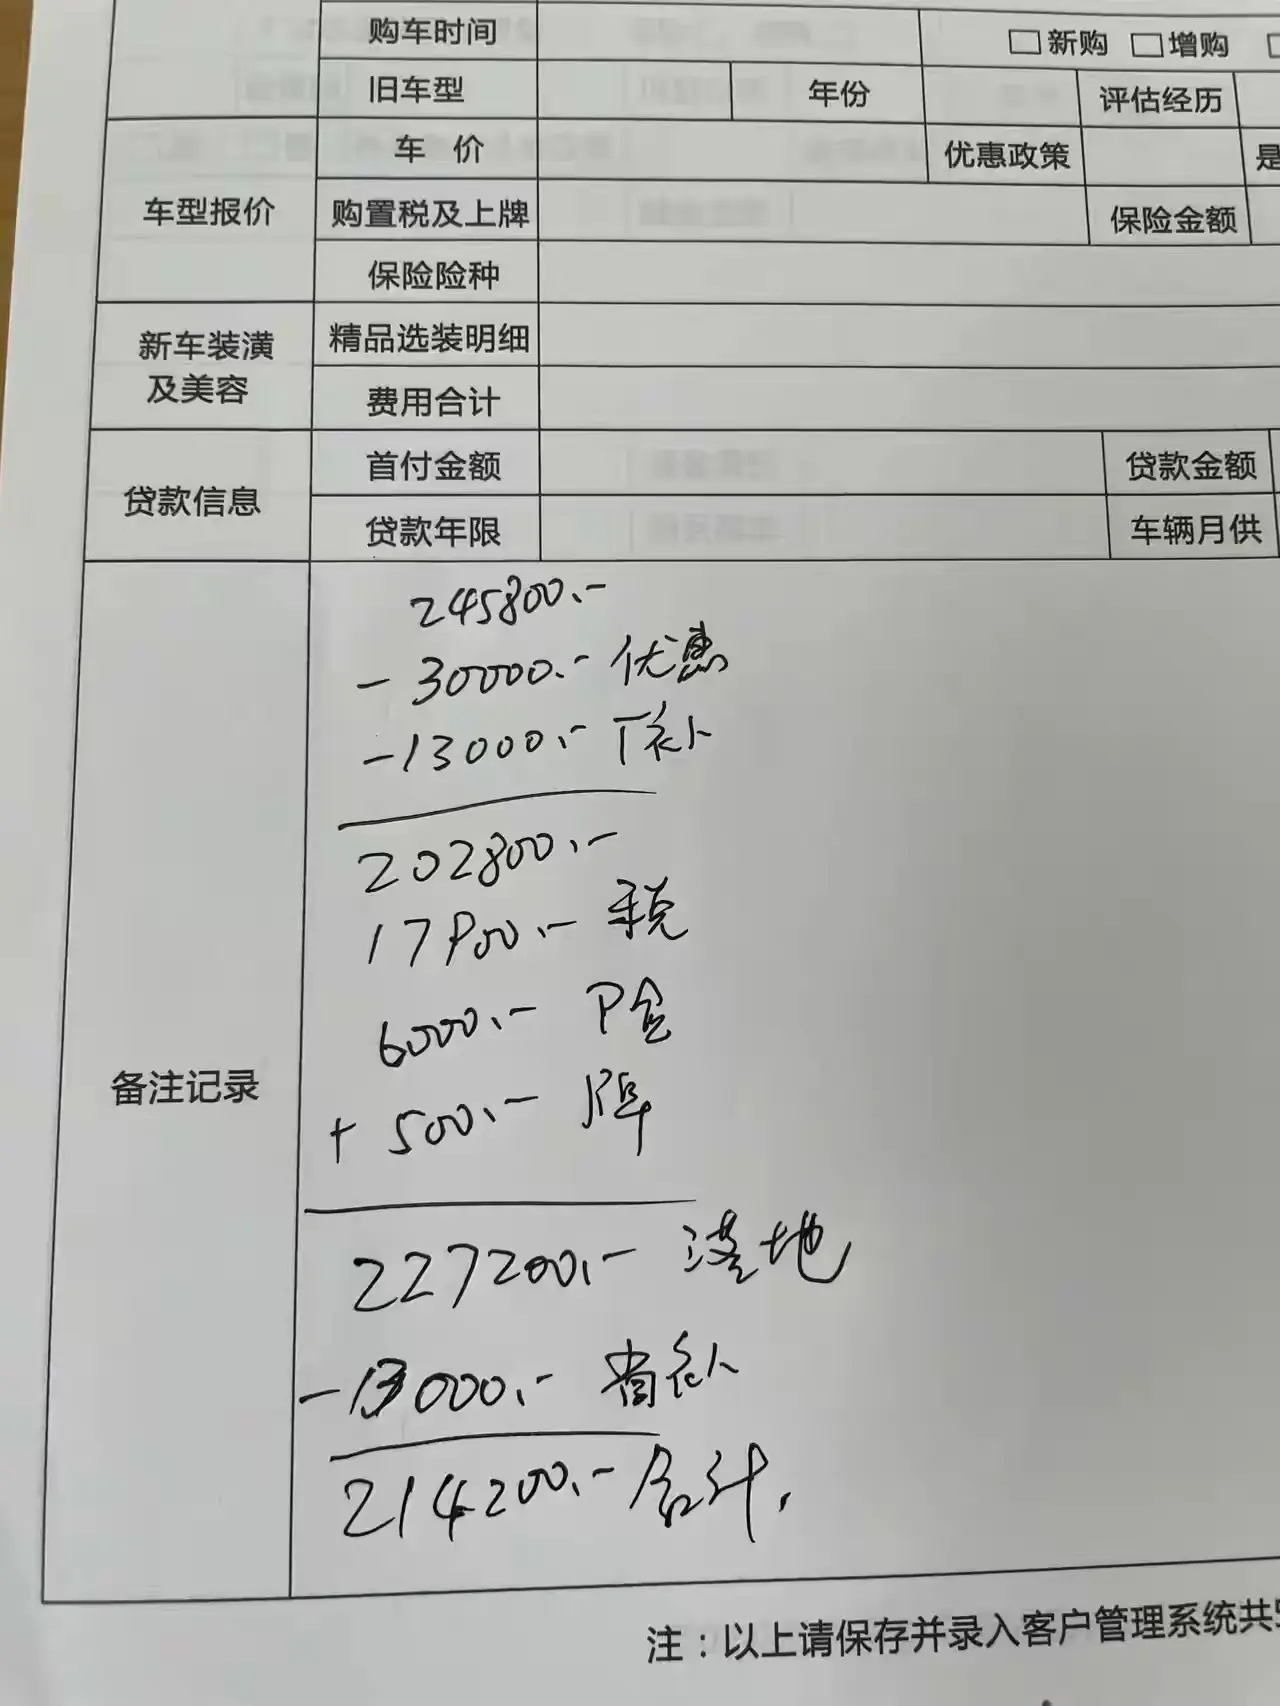 购车时间 □新购 □增购 □
旧车型 年份 评估经历
车型报价 车 价 优惠政策 是
购置税及上牌 保险金额
保险险种
新车装潢及美容 精品选装明细
费用合计
贷款信息 首付金额 贷款金额
贷款年限 车辆月供
备注记录
245800.-
-30000.- 优惠
-13000.- 厂补
202800.-
17900.- 税
6000.- 保
+ 500.- 牌
227200.- 落地
-13000.- 省补
214200.- 合计.
注：以上请保存并录入客户管理系统共